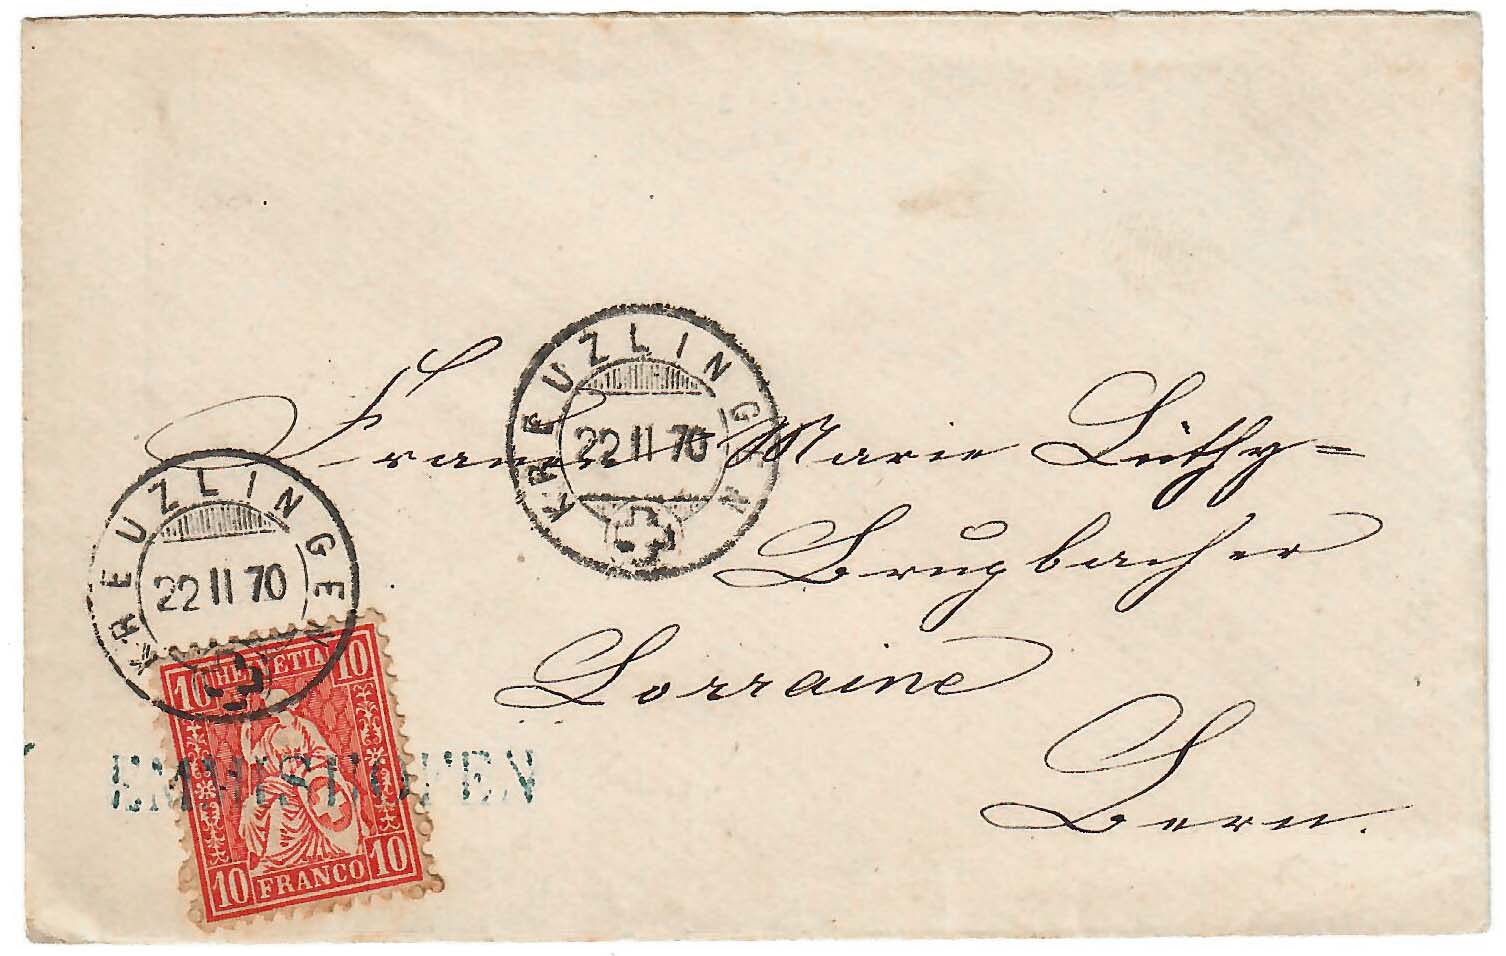 KREUZLINGEN
22 II 70
KREUZLINGEN
22 II 70
Frauen Marie Lüthy=
Brugbacher
Lorraine
Bern.
10 HELVETIA 10
EMMISHOFEN
10 FRANCO 10